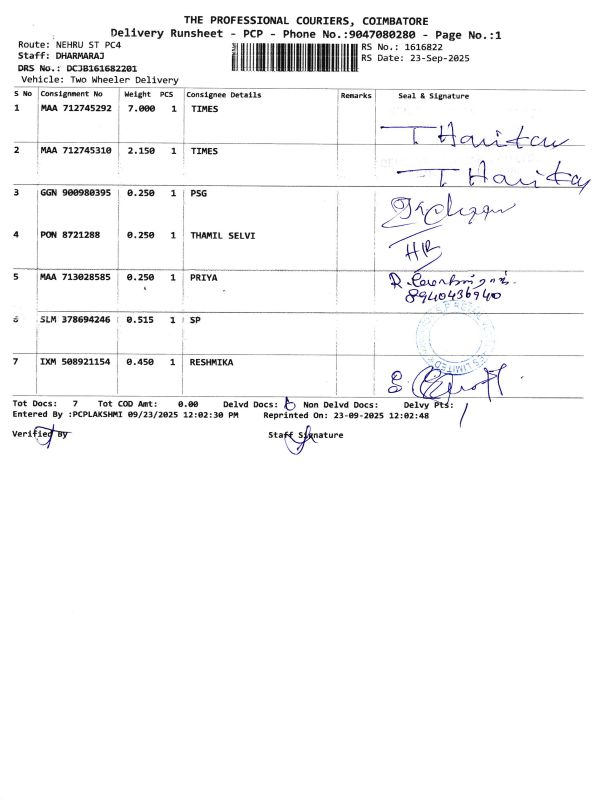 THE PROFESSIONAL COURIERS, COIMBATORE
Delivery Runsheet - PCP - Phone No.:9047080280 - Page No.:1
Route: NEHRU ST PC4 RS No.: 1616822
Staff: DHARMARAJ RS Date: 23-Sep-2025
DRS No.: DCJB161682201
Vehicle: Two Wheeler Delivery
S No Consignment No Weight PCS Consignee Details Remarks Seal & Signature
1 MAA 712745292 7.000 1 TIMES
T Haritaw
2 MAA 712745310 2.150 1 TIMES
T Harita
3 GGN 900980395 0.250 1 PSG
4 PON 8721288 0.250 1 THAMIL SELVI
5 MAA 713028585 0.250 1 PRIYA
8940436940
6 SLM 378694246 0.515 1 SP
7 IXM 508921154 0.450 1 RESHMIKA
Tot Docs: 7 Tot COD Amt: 0.00 Delvd Docs: 6 Non Delvd Docs: Delvy Pts:
Entered By :PCPLAKSHMI 09/23/2025 12:02:30 PM Reprinted On: 23-09-2025 12:02:48
Verified By Staff Signature